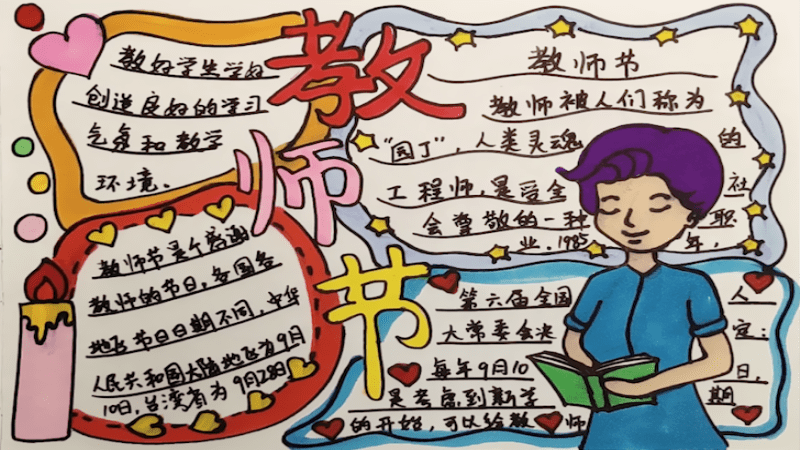 教师节
教好学生学好
创造良好的学习
气氛和教学
环境.
教师节
教师被人们称为
"园丁",人类灵魂的
工程师,是受全社
会尊敬的一种职
业.1985年,
教师节是个感谢
教师的节日,各国各
地区节日日期不同,中华
人民共和国大陆地区为9月
10日,台湾省为9月28日
第六届全国人
大常委会决定:
每年9月10日,
是考虑到新学期
的开始,可以给教师